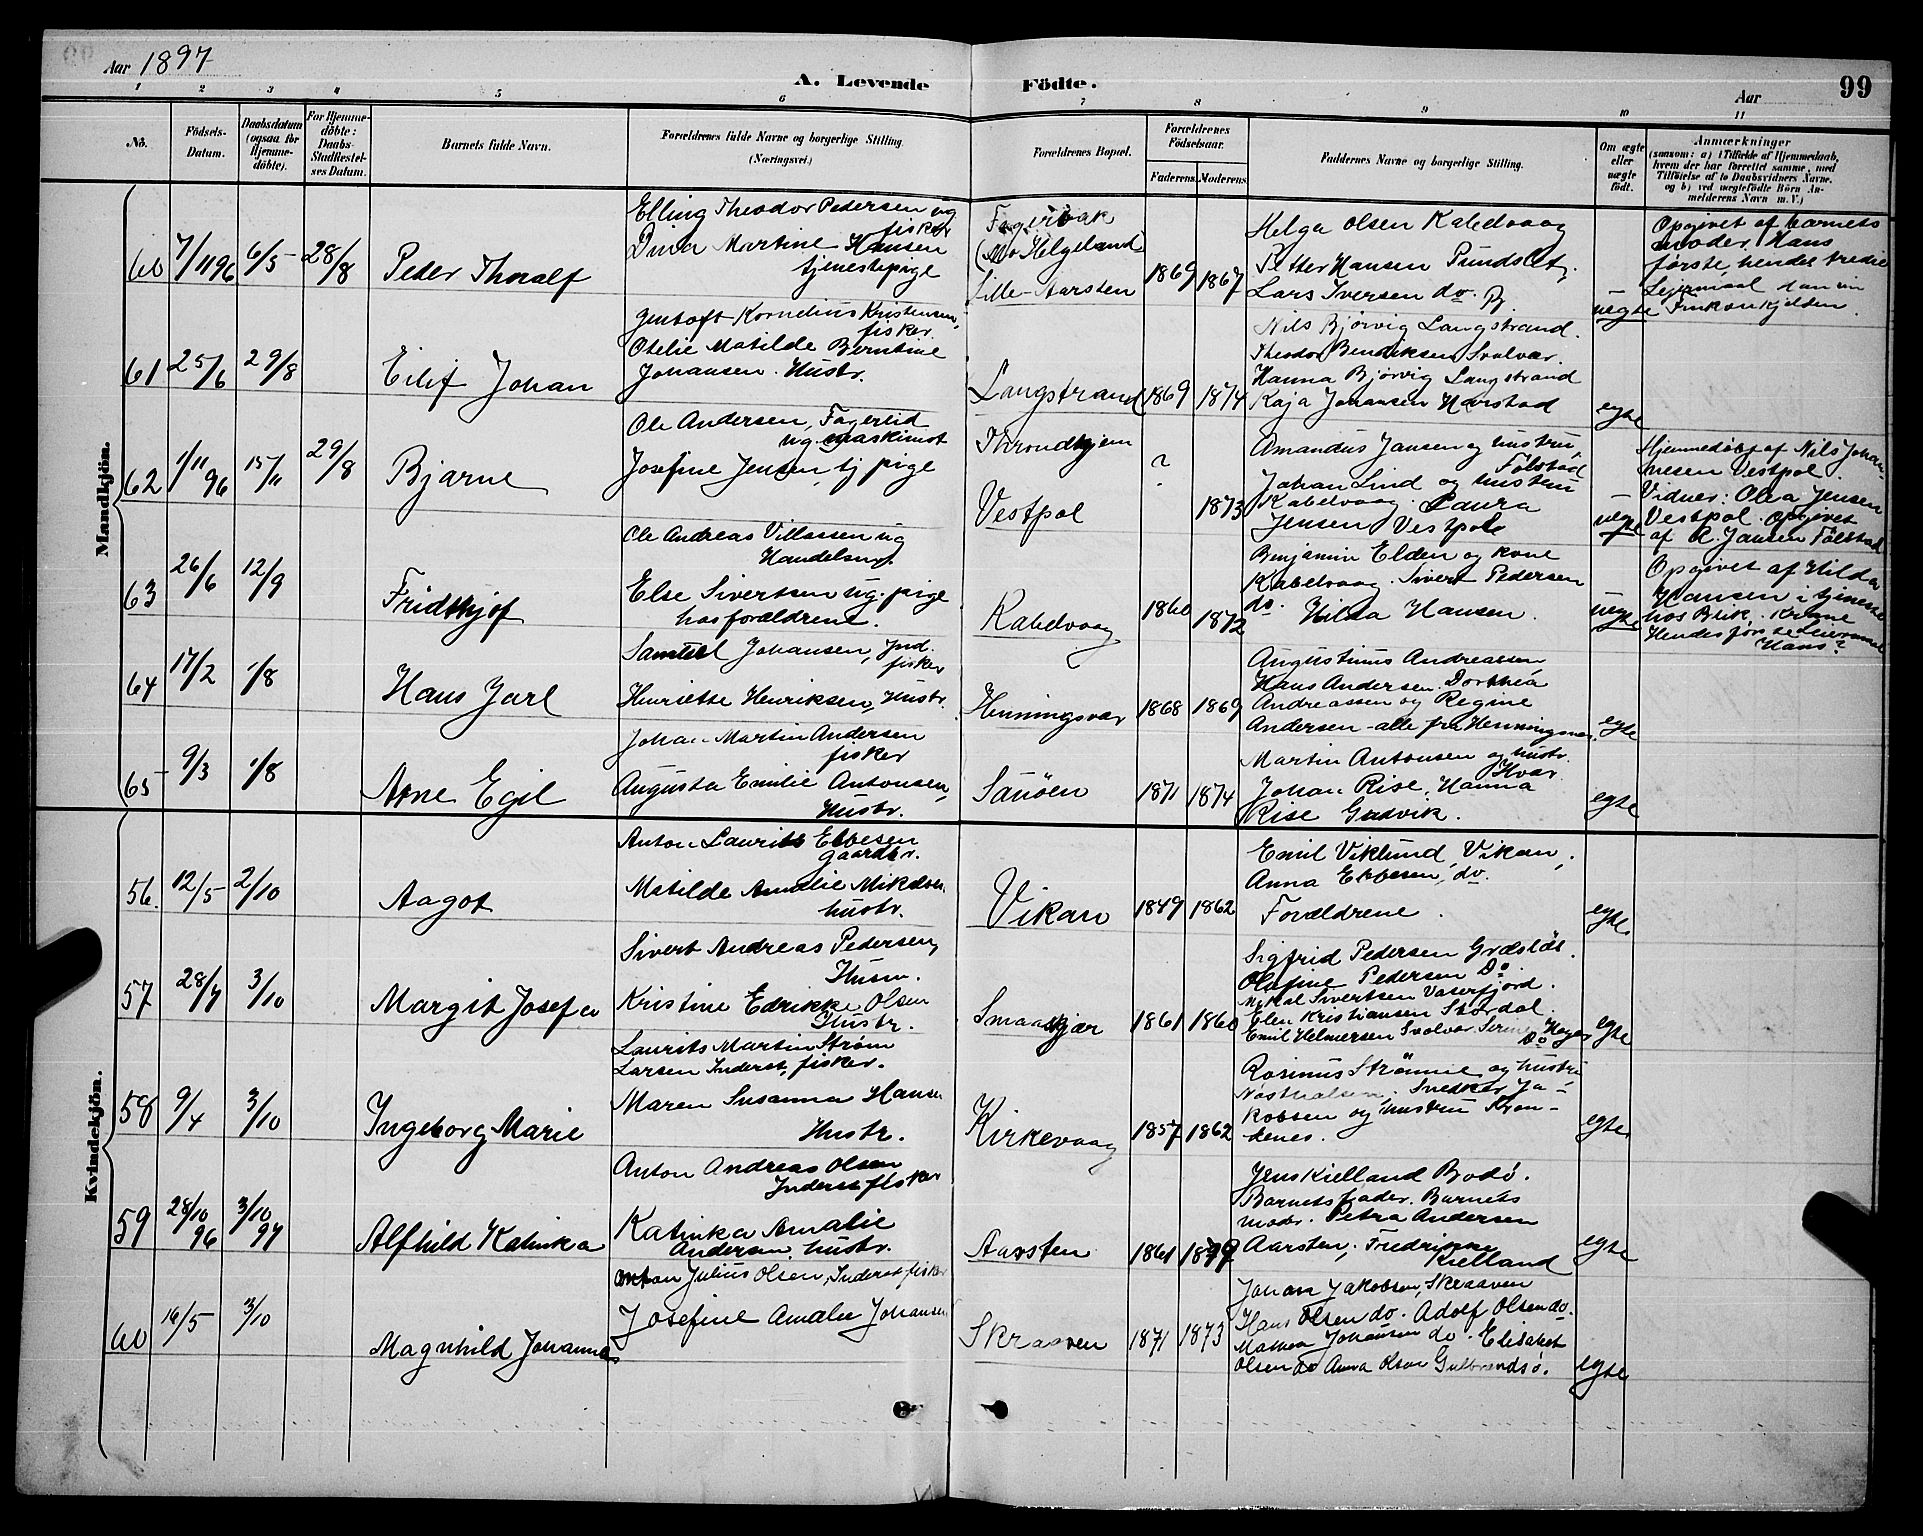 Aar 1897
A. Levende Födte.
99
Aar
1 2 3 4 5 6 7 8 9 10 11
No.
Födsels-Datum.
Daabsdatum (ogsaa for Hjemmedöbte).
For Hjemmedöbte: Daabs-Stadfestelses Datum.
Barnets fulde Navn.
Forældrenes fulde Navne og borgerlige Stilling. (Næringsvei.)
Forældrenes Bopæl.
Forældrenes Födselsaar.
Faderens. Moderens.
Faddernes Navne og borgerlige Stilling.
Om ægte eller uægte födt.
Anmærkninger
(saasom: a) i Tilfælde af Hjemmedaab, hvem der har forrettet samme, med Tilföielse af to Daabsvidners Navne, og b) ved uægtefödte Börn Anmelderens Navn m. V.)
Mandkjön.
60 7/11 96 6/5 28/8 Peder Thoralf
Elling Theodor Pedersen ug
fisker
Dina Martine Hansen
tjenestepige
Fagervak
(Mo Helgeland
Lille-Aarsten
1869 1867
Helga Olsen Kabelvaag
Petter Hansen Pundslet
Lars Iversen do.
uegte
Opgivet af barnets
moder. Hans
förste, hendes tredie
Leiermaal
61 25/6 29/8 Eilif Johan
Gentoft Kornelius Kristensen,
fisker.
Otelie Matilde Berntine
Johansen. Hustr.
Langstrand 1869 1874
Nils Bjørvig Langstrand.
Theodor Bendiksen Svolvær.
Hanna Bjørvig Langstrand
Kaja Johansen Harstad
egte
62 1/11 96 15/11 29/8 Bjarne
Ole Andersen, Fagerlid
ug. maskinist
Josefine Jensen, tj pige
Throndhjem
Vestpol
? 1873
Amandus Jansen og hustru,
Fölstad
Johan Lind og hustru
Kabelvaag. Laura
Jensen Vestpol
uegte
Hjemmedöbt af Nils Johannesen Vestpol.
Vidner: Olea Jensen
Vestpol. Opgivet
af A. Jansen Fölstad
63 26/6 12/9 Fridthjof
Ole Andreas Villassen ug
Handelsm.
Else Sivertsen ug. pige
hos forældrene.
Kabelvaag 1860 1872
Benjamin Elden og kone
Kabelvaag. Sivert Pedersen
do. Hilda Hansen.
uegte
Opgivet af Hilda
Hansen i tjeneste
hos Blik.
Hendes förste Leiermaal
Hans?
64 17/2 1/8 Hans Jarl
Samuel Johansen, Ind.
fisker
Henriette Henriksen, Hustr.
Henningsvær 1868 1869
Augustinus Andreassen
Hans Andersen. Dorthea
Andreassen og Regine
Andersen-alle fra Henningsvær.
egte
65 9/3 1/8 Arne Egil
Johan Martin Andersen
fisker
Augusta Emilie Antonsen,
Hustr.
Sauöen 1871 1874
Martin Antonsen og hustr.
Hvar.
Johan Rise, Hanna
Rise Gudvik.
egte
Kvindekjön.
56. 12/5 2/10 Aagot
Anton Laurits Ebbesen
gaardbr.
Matilde Amalie Mikalsen
hustr.
Vikan 1849 1862
Emil Viklund, Vikan,
Anna Ebbesen, do.
Forældrene.
egte.
57 28/7 3/10 Margit Josefa
Sivert Andreas Pedersen,
Husm.
Kristine Edrikke Olsen
Hustr.
Smaaskjær 1861 1860
Sigfrid Pedersen Grædslöt.
Olafine Pedersen Do
Mikal Sivertsen Vaterfjord.
Elen Kristiansen Stordal.
Emil Helmersen Svolvær
Do
egte
58 9/4 3/10 Ingeborg Marie
Laurits Martin Strøm
Larsen Inderst, fisker.
Maren Susanna Hansen
Hustr.
Kirkevaag 1857 1862
Rasmus Strømme og hustru
Snedker Jakobsen og hustru
egte.
59 28/10 96 3/10 97 Alfhild Katinka
Anton Andreas Olsen
Inderst fisker
Katinka Amalie
Andersen, hustr.
Aarsten 1861
Jens Kielland Bodö.
Barnets fader. Barnets
moder. Petra Andersen
Aarsten. Fredrikke
Kielland
egte
60 16/5 3/10 Magnhild Johanna
Anton Julius Olsen, Inderst fisker
Josefine Amalie Johansen
Skraaven 1871 1873
Johan Jakobsen, Skraaven
Hans Olsen do. Adolf Olsen do.
Mathea Johansen do. Elisabet
Olsen do Anna Olsen Gulbrandsö.
egte